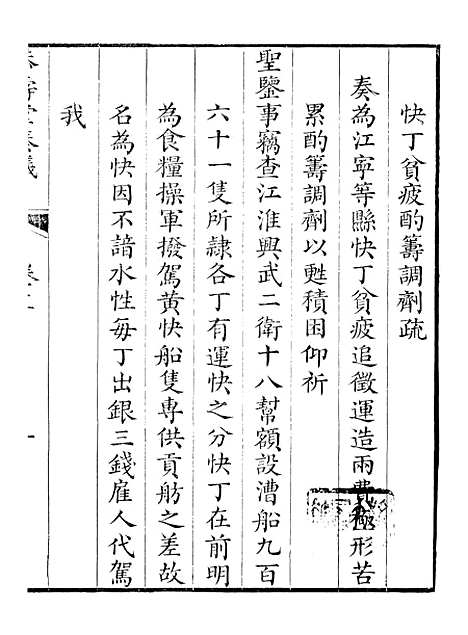 快丁貧疲酌籌調劑疏
奏為江寧等縣快丁貧疲追徵運造兩費極形苦
累酌籌調劑以甦積困仰祈
聖鑒事竊查江淮興武二衛十八幫額設漕船九百
六十一隻所隸各丁有運快之分快丁在前明
為食糧操軍撥駕黃快船隻專供貢舫之差故
名為快因不諳水性每丁出銀三錢雇人代駕
我
奏議
卷二
一